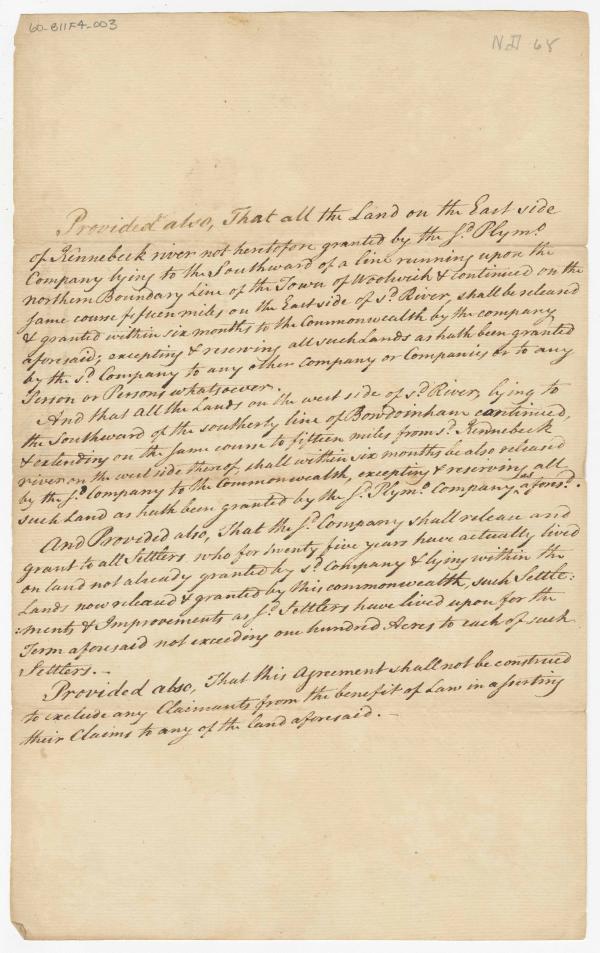 60-B11F4-003
ND 68
Provided also, That all the Land on the East side
of Kennebeck river not heretofore granted by the sd. Plymo.
Company lying to the Southward of a line running upon the
northern Boundary Line of the Town of Woolwich & continued on the
same course fifteen miles on the East side of sd. River, shall be released
& granted within six months to the Commonwealth by the company
aforesaid; excepting & reserving all such Lands as hath been granted
by the sd. Company to any other Company or Companies or to any
Person or Persons whatsoever.
And that all the Lands on the west side of sd. River, lying to
the Southward of the southerly line of Bowdoinham continued,
& extending on the same course to fifteen miles from sd. Kennebeck
river on the west side thereof, shall within six months be also released
by the sd. Company to the Commonwealth, excepting & reserving all
such Land as hath been granted by the sd. Plymo. Company as afores.d
And Provided also, That the sd. Company shall release and
grant to all Settlers who for twenty five years have actually lived
on land not already granted by sd. Company & lying within the
Lands now released & granted by this commonwealth, such Settle:
:ments & Improvements as sd. Settlers have lived upon for the
Term aforesaid not exceeding one hundred Acres to each of such
Settlers.—
Provided also, That this Agreement shall not be construed
to exclude any Claimants from the benefit of Law in asserting
their Claims to any of the land aforesaid.—